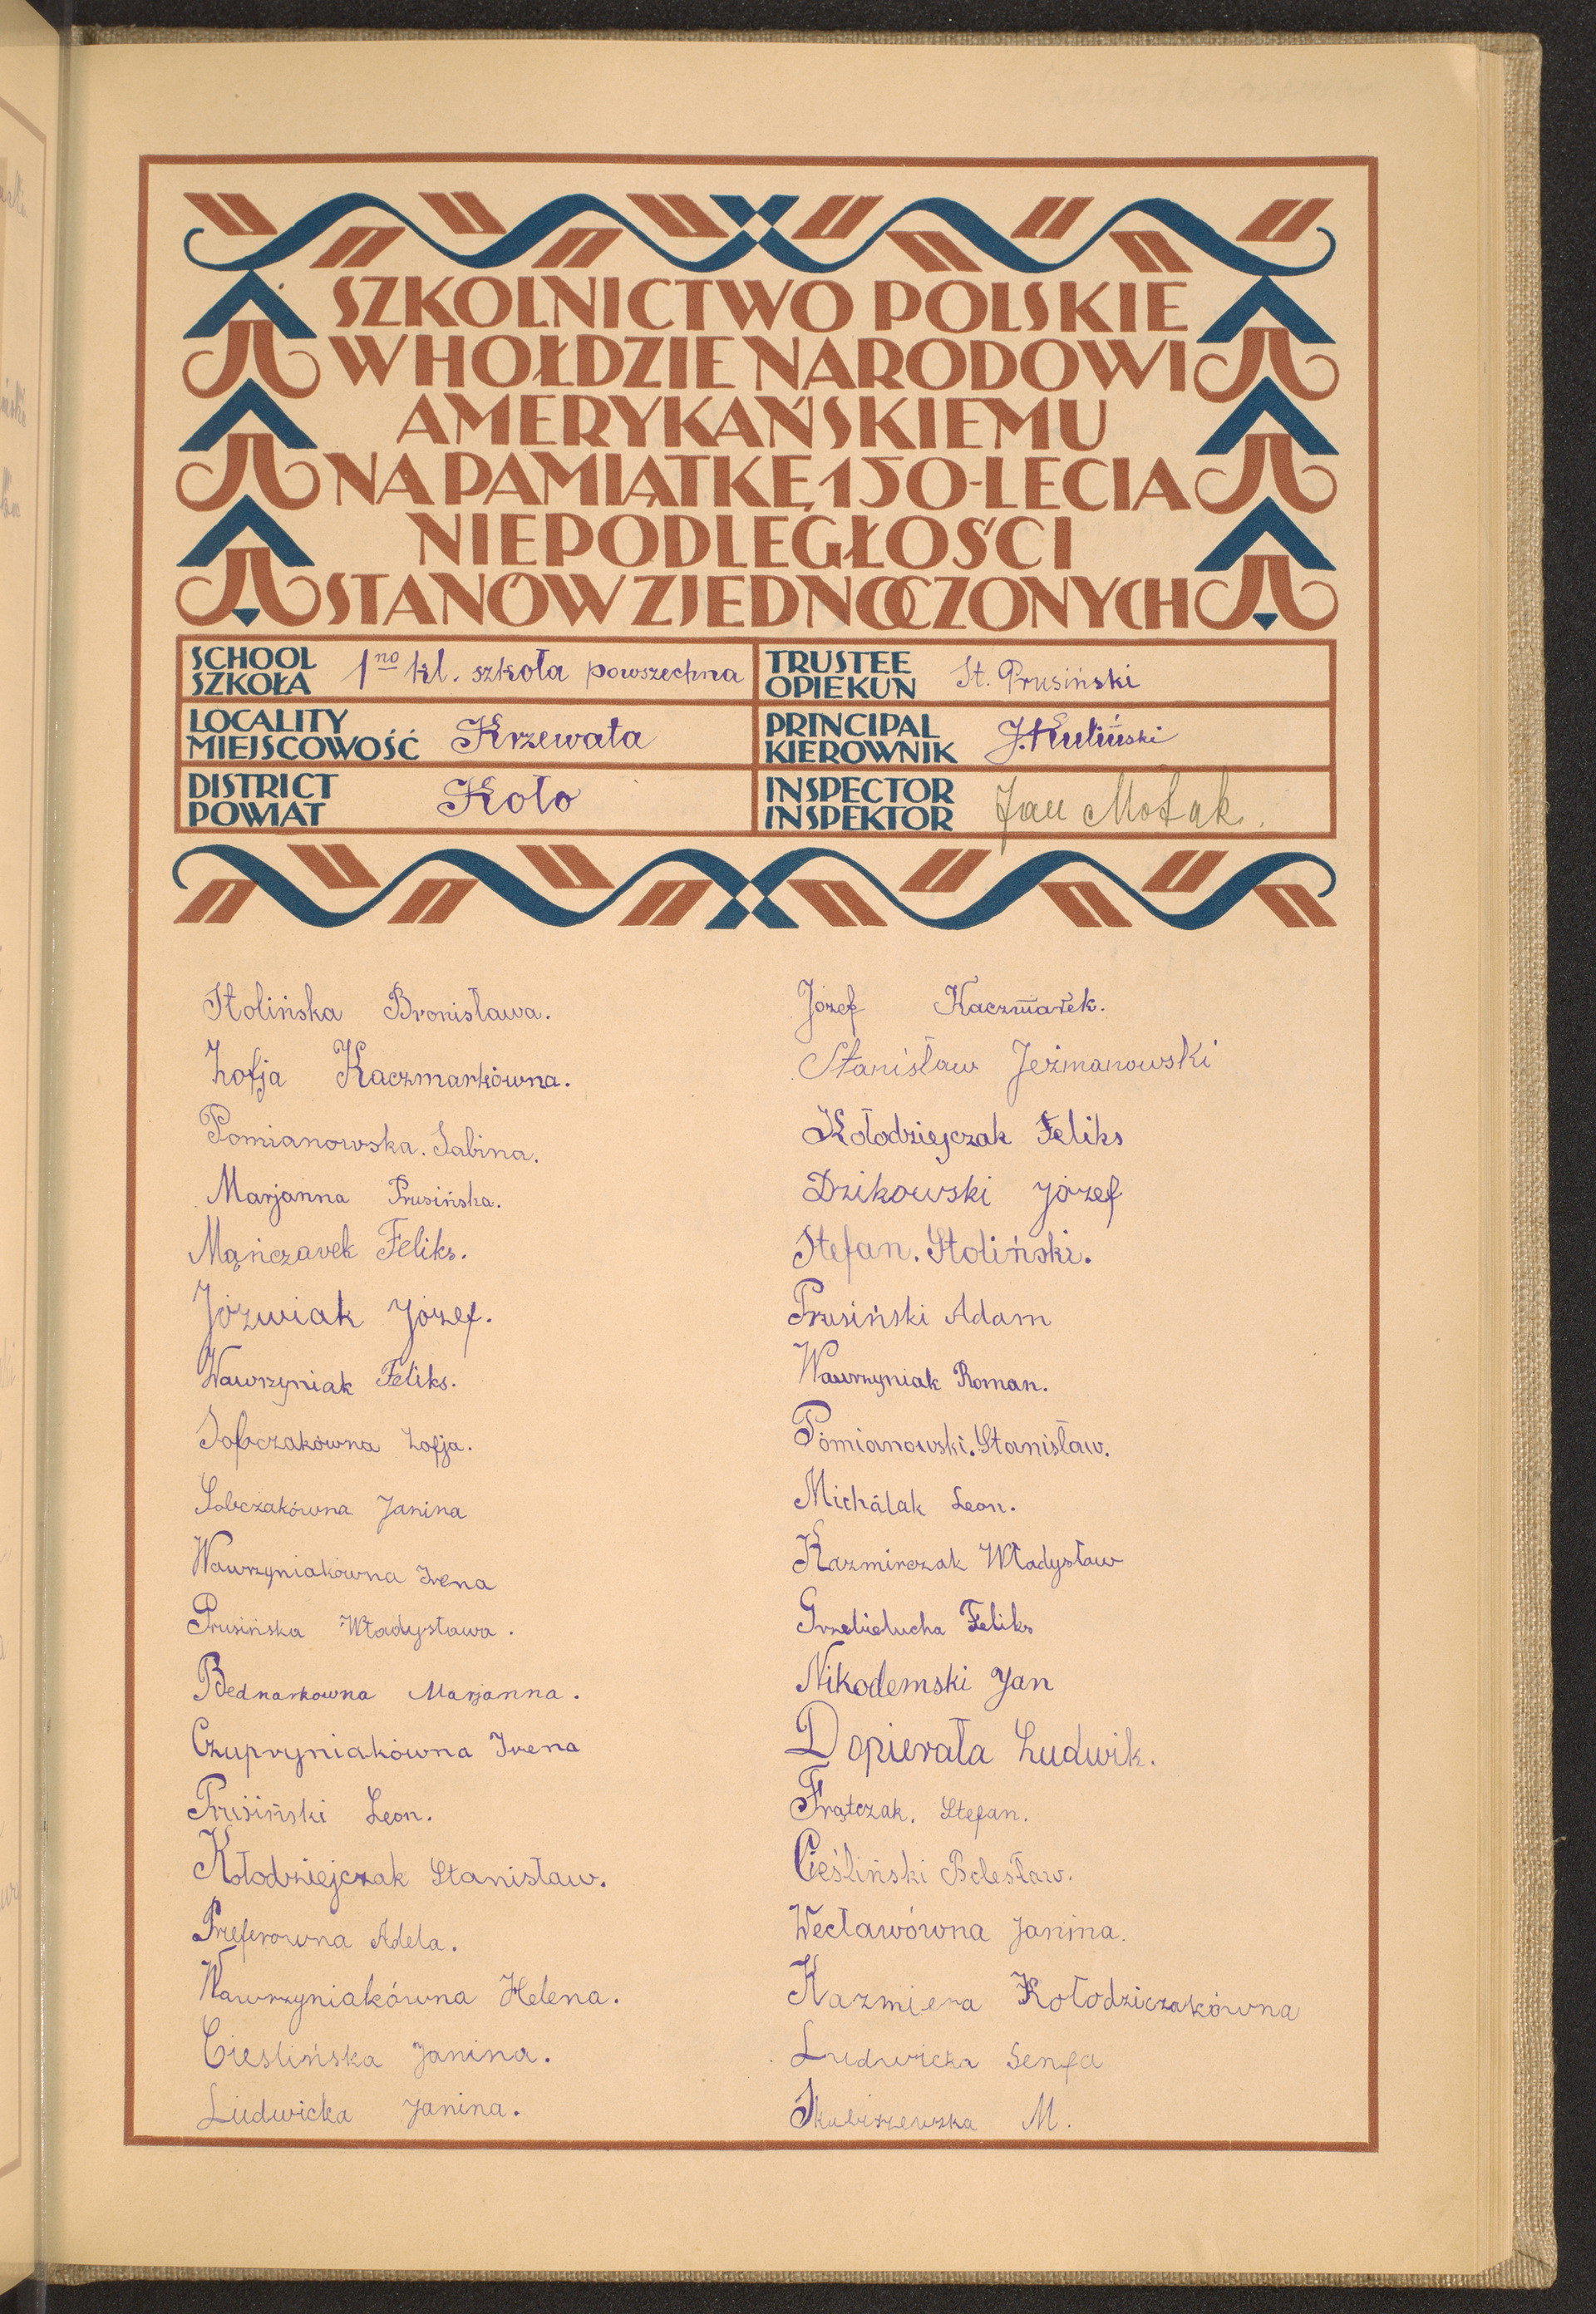 SZKOLNICTWO POLSKIE
W HOŁDZIE NARODOWI
AMERYKAŃSKIEMU
NA PAMIĄTKĘ 150-LECIA
NIEPODLEGŁOŚCI
STANÓW ZJEDNOCZONYCH
SCHOOL
SZKOŁA
1no kl. szkoła powszechna
TRUSTEE
OPIEKUN
St. Prusiński
LOCALITY
MIEJSCOWOŚĆ
Krzewata
PRINCIPAL
KIEROWNIK
J. Kuliński
DISTRICT
POWIAT
Koło
INSPECTOR
INSPEKTOR
Jan
Stolińska Bronisława.
Zofja Kaczmarkówna.
Pomianowska. Sabina.
Marjanna Prusińska.
Mąńczarek Feliks.
Jóźwiak Józef.
Wawrzyniak Feliks.
Sobczakówna Zofja.
Sobczakówna Janina
Wawrzyniakówna Irena
Prusińska Władysława.
Bednarkowna Marjanna.
Czupryniakówna Irena
Prusiński Leon.
Kołodziejczak Stanisław.
Preferowna Adela.
Wawrzyniakówna Helena.
Cieslińska Janina.
Ludwicka Janina.
Józef Kaczmarek.
Stanisław Jeżmanowski
Kołodziejczak Feliks
Dzikowski Józef
Stefan. Stoliński.
Prusiński Adam
Wawrzyniak Roman.
Pomianowski. Stanisław.
Michalak Leon.
Kazmirczak Władysław
Grzebielucha Feliks
Nikodemski Jan
Dopierała Ludwik.
Frątczak. Stefan.
Cieśliński Bolesław.
Wecławówna Janina.
Kazmiera Kołodziczakówna
Ludwicka Genfa
Skubiszewska M.